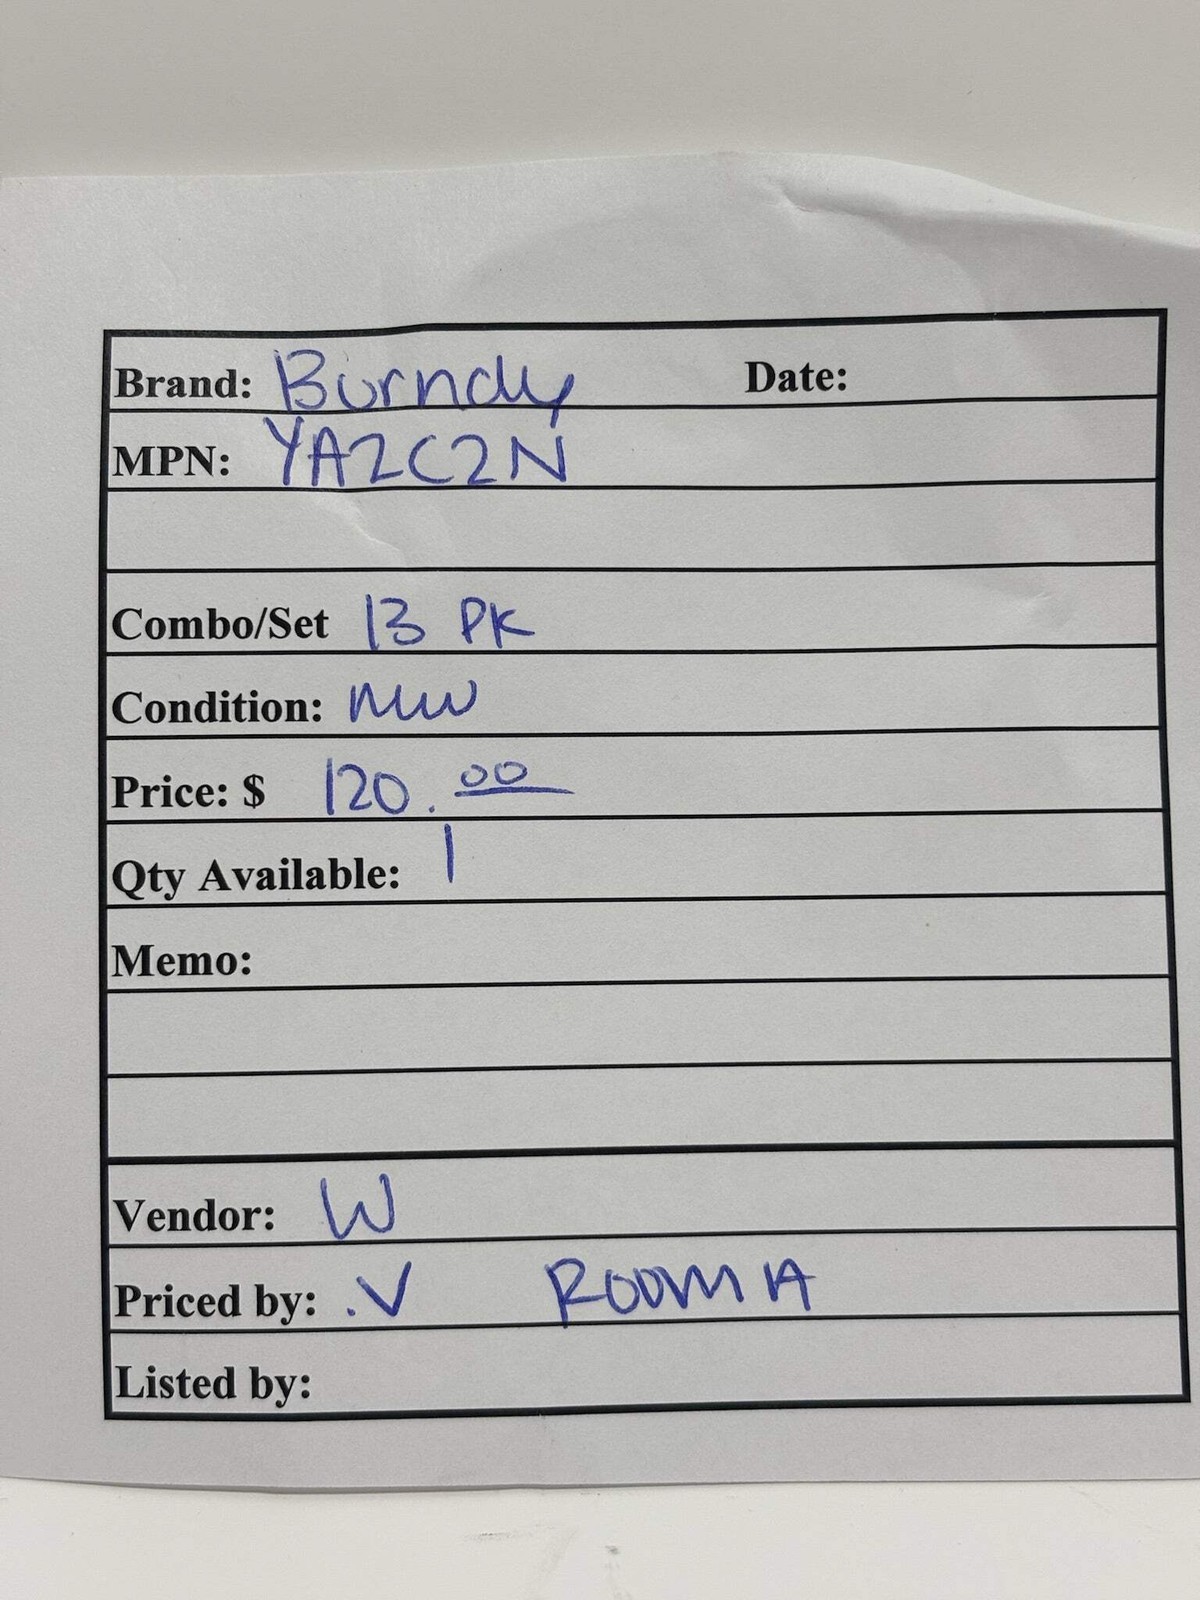 Brand: Burndy Date:
MPN: YA2C2N
Combo/Set 13 PK
Condition: new
Price: $ 120.00
Qty Available: 1
Memo:
Vendor: W
Priced by: .V ROOM A
Listed by: